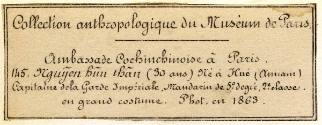 Collection anthropologique du Muséum de Paris.
Ambassade Cochinchinoise à Paris.
145. Nguyên hûn thân (30 ans) Né à Hué (Annam)
Capitaine de la Garde Impériale, Mandarin de 5e degré, 2e classe.
en grand costume. Phot. en 1863.